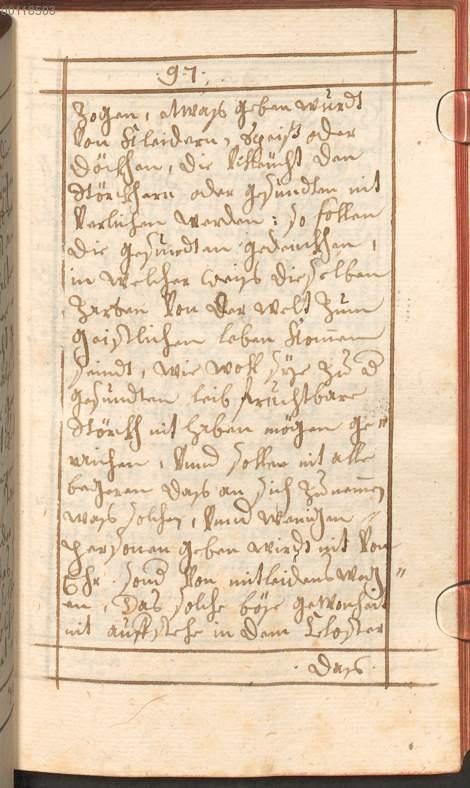 00118503
97.
zogen, etwas geben wurdt
von Kleidern, Speiß oder
Döckhen, die villeücht den
störckhern oder gesundten nit
verlichen werden: so sollen
die gesundten gedenckhen,
in welcher weiß dieselben
zarten von der welt zum
geistlichen leben kommen
seindt, wie woll sÿe zu d
gesundten leib fruchtbare
störckh nit haben mögen ge"
raichen, unnd sollen nit alle
begeren das an sich zunemen
was solchen, unnd wenigen
persohnen geben wirdt nit von
Ehr. sond von mitleidens weg"
en, Das solche böse gewonheit
nit auffstehe in dem Closter
Das